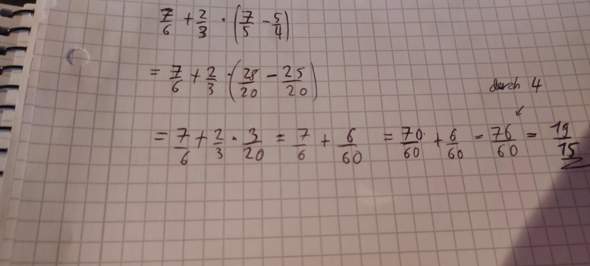 7/6 + 2/3 · (7/5 - 5/4)
= 7/6 + 2/3 · (28/20 - 25/20)
durch 4
= 7/6 + 2/3 · 3/20 = 7/6 + 6/60 = 70/60 + 6/60 = 76/60 = 19/15